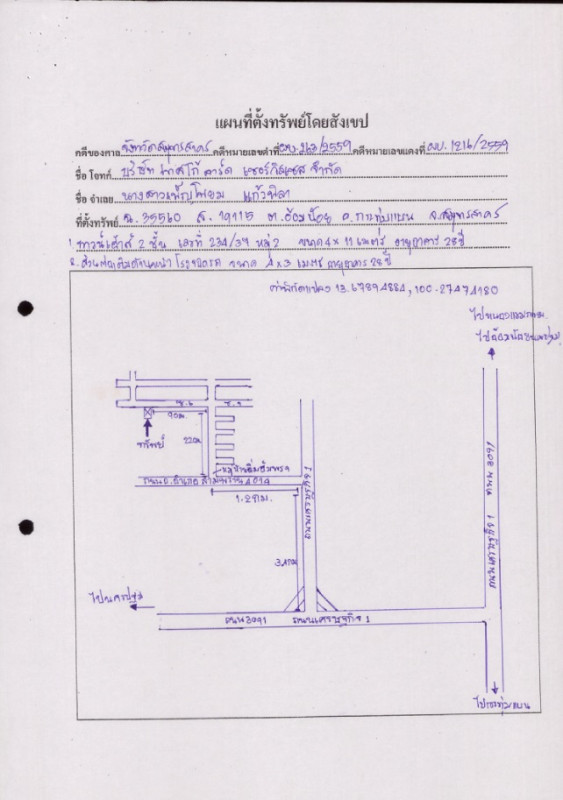 แผนที่ตั้งทรัพย์โดยสังเขป
คดีของศาล จังหวัดสมุทรสาคร คดีหมายเลขดำที่ ผบ.263/2559 คดีหมายเลขแดงที่ ผบ.1216/2559
ชื่อ โจทก์ บริษัท เทสโก้ คาร์ด เซอร์วิสเซส จำกัด
ชื่อ จำเลย นางสาวเพ็ญโฉม แก้ว
ที่ตั้งทรัพย์ ฉ.35560 ล.19115 ต.อ้อมน้อย อ.กระทุ่มแบน จ.สมุทรสาคร
1. ทาวน์เฮ้าส์ 2 ชั้น เลขที่ 234/34 หมู่ 2 ขนาด 4x11 เมตร อายุอาคาร 28 ปี
2. ส่วนต่อเติมด้านหน้า โรงจอดรถ ขนาด 4x3 เมตร อายุอาคาร 28 ปี
ค่าพิกัดแปลง 13.67894884, 100.27474180
ซ.6
ซ.4
90ม.
ทรัพย์
220ม.
1.2กม.
ถนนเศรษฐกิจ 1
ถนนเศรษฐกิจ 1 ถนน 3091
ไปนครปฐม
ถนน 3091 ถนนเศรษฐกิจ 1
ไปกระทุ่มแบน